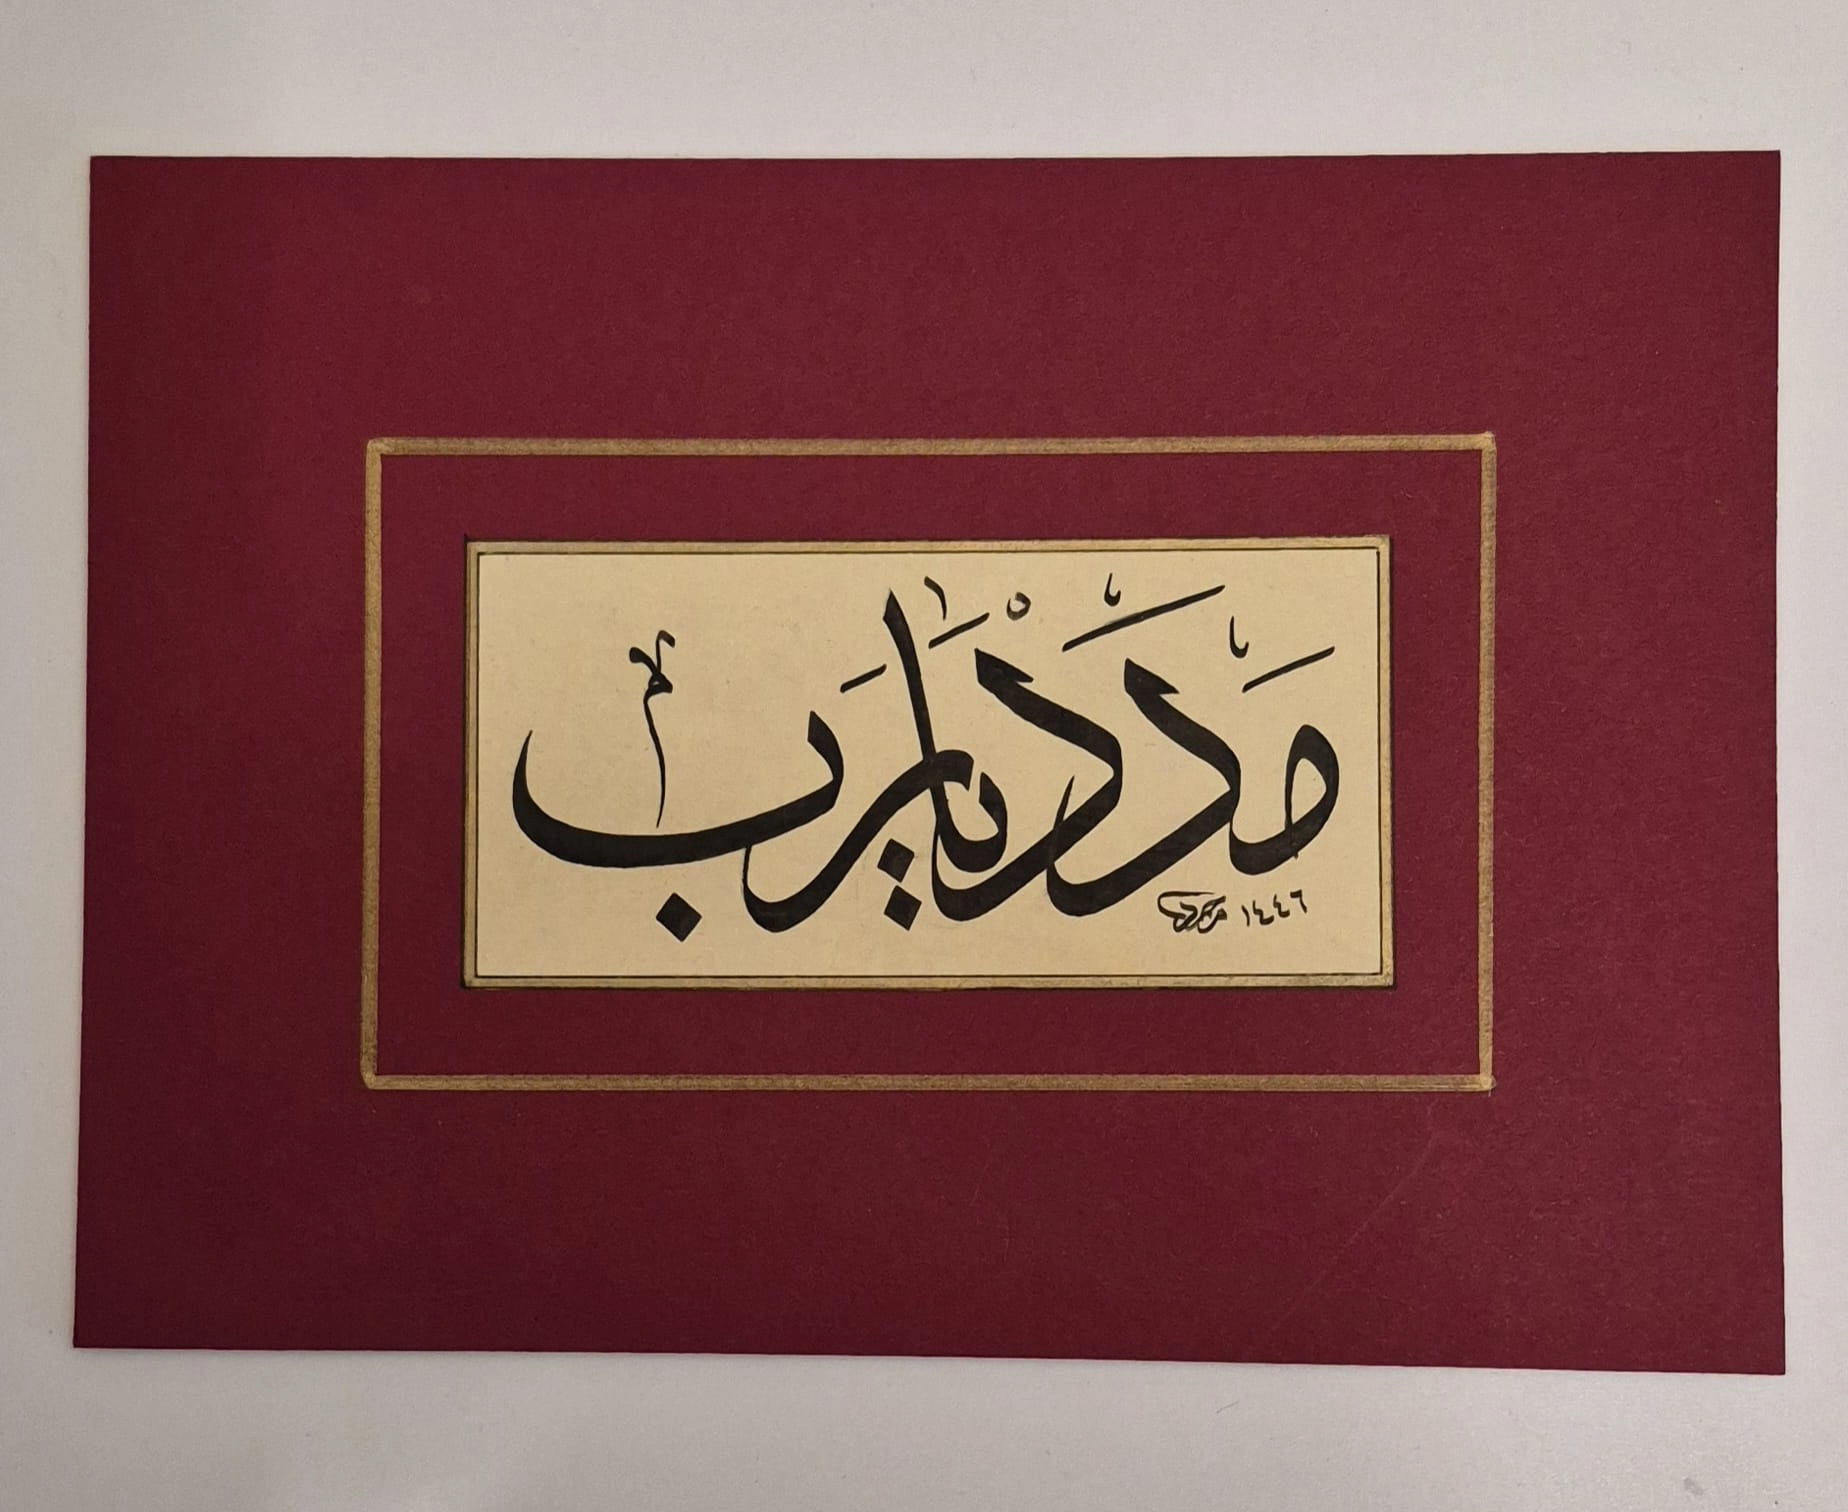 مَدَدْ يَا رَب
١٤٤٦